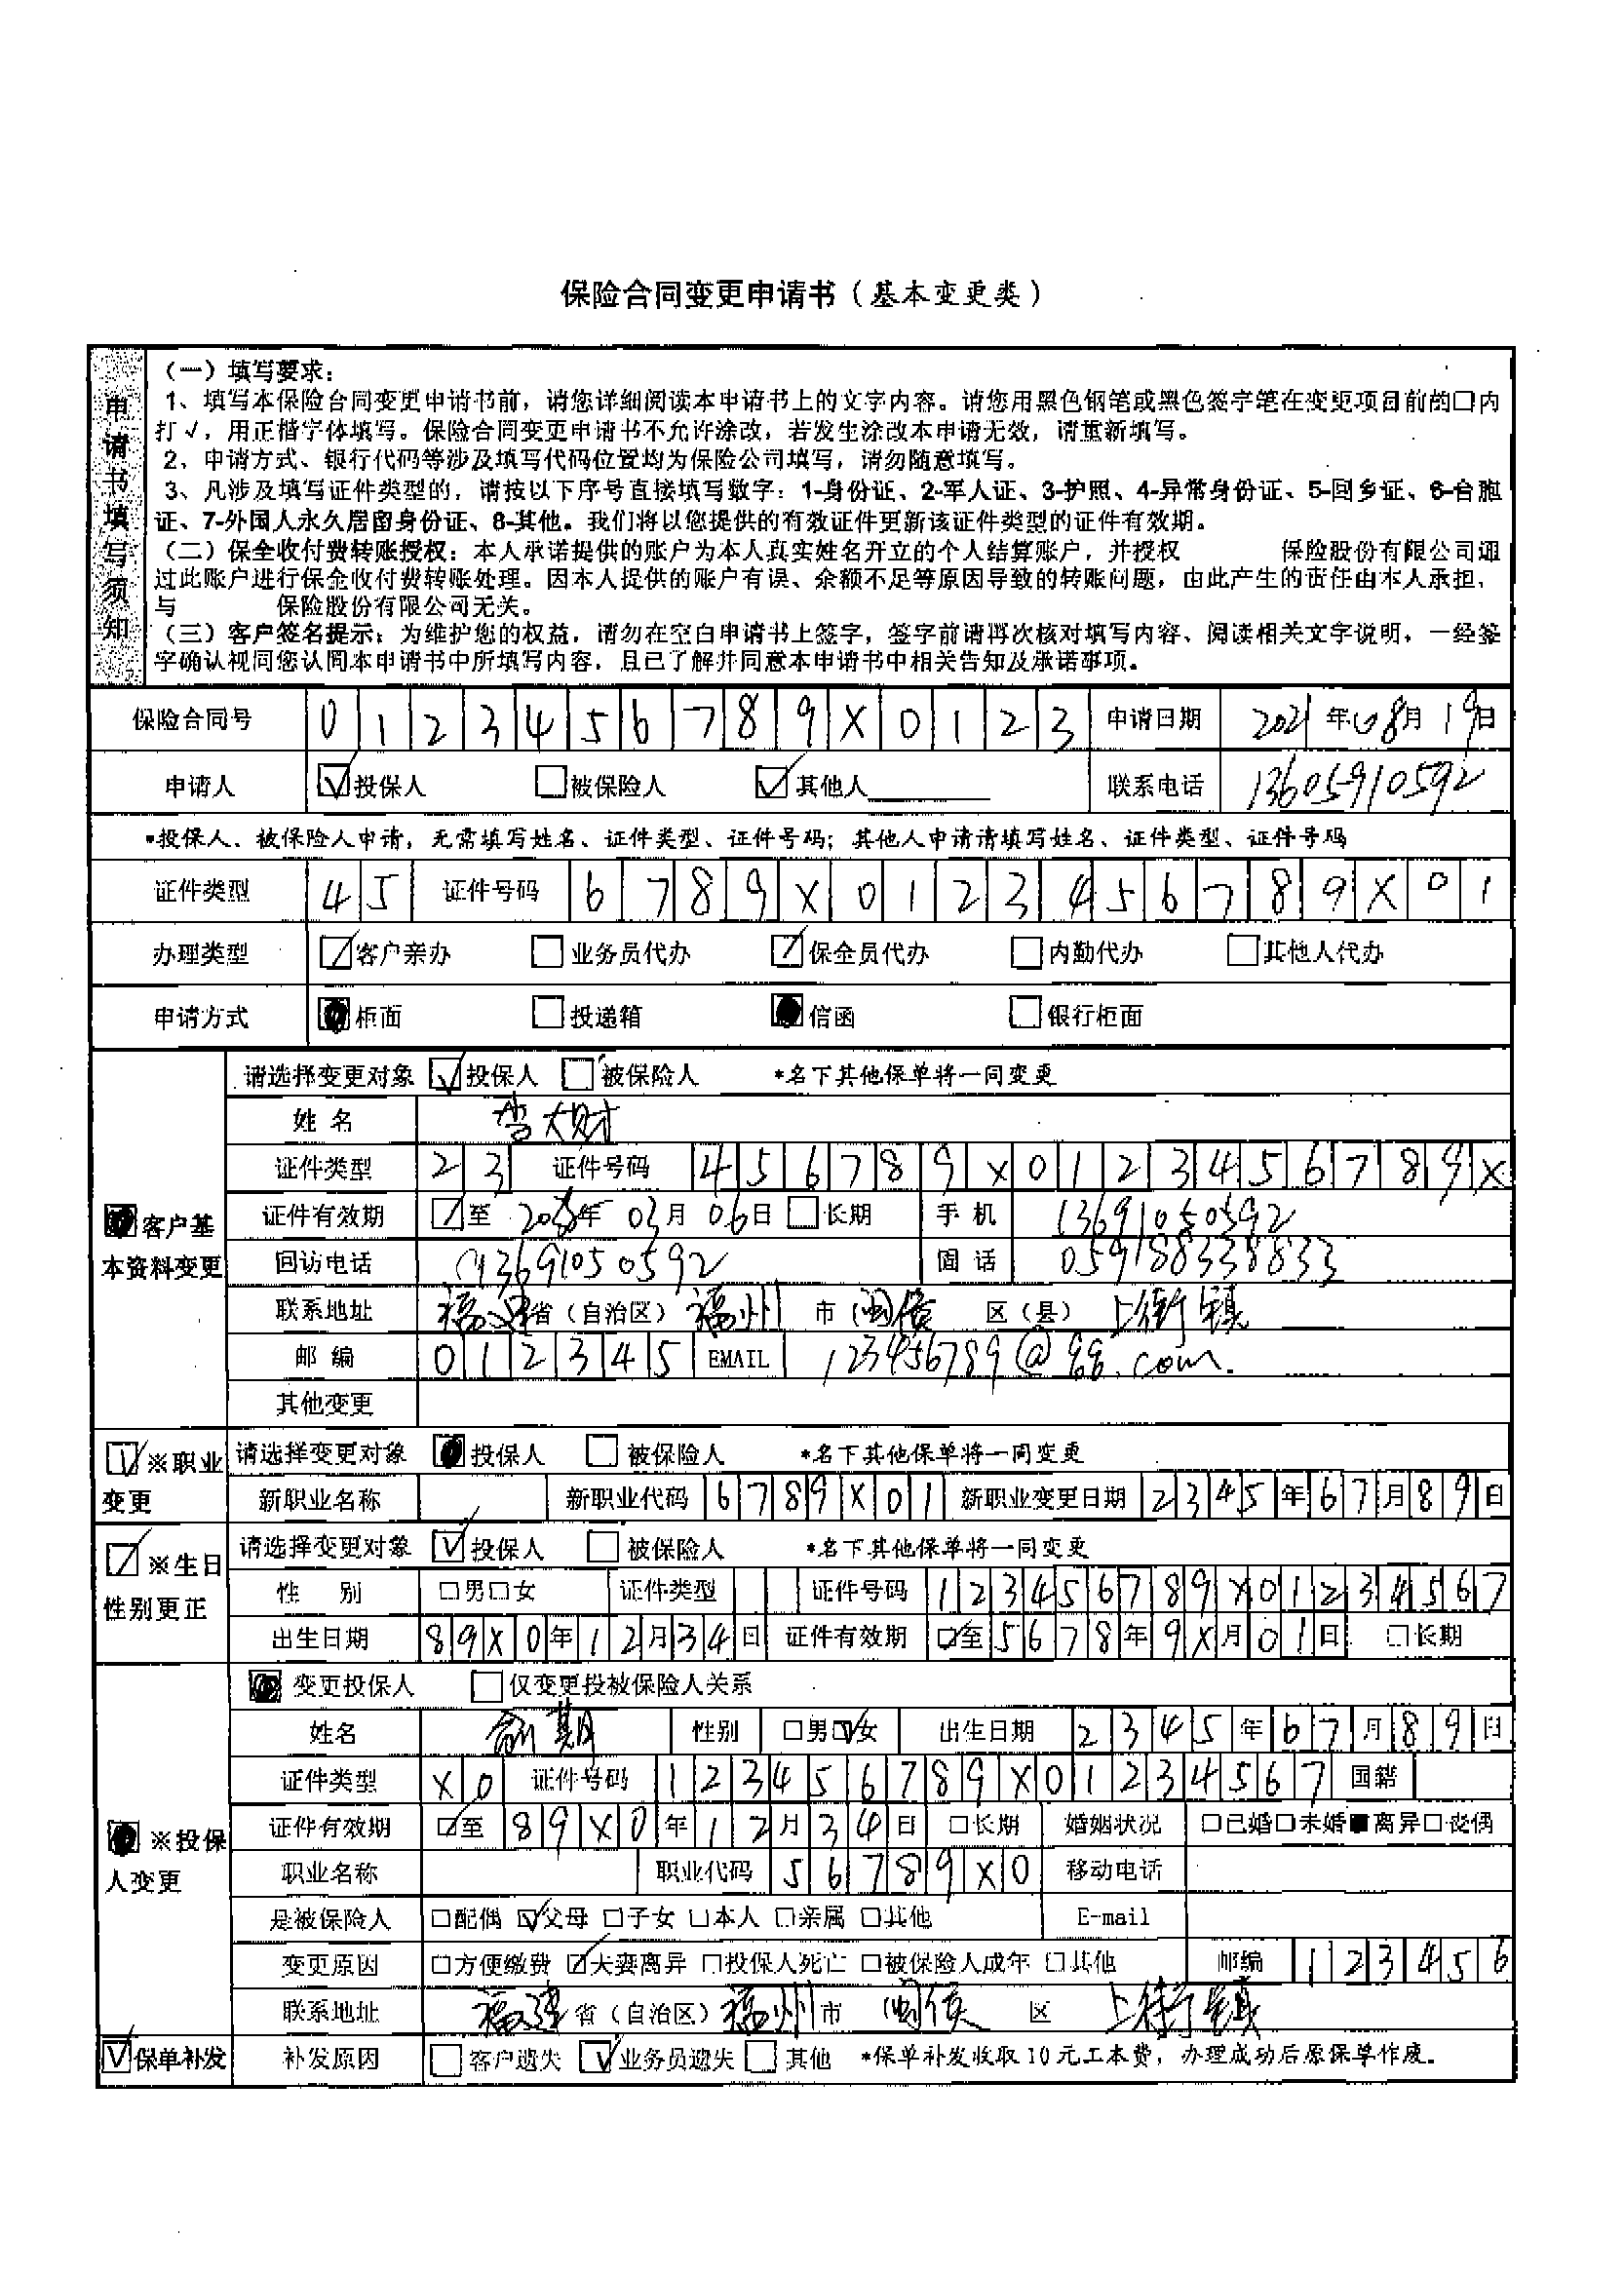 保险合同变更申请书（基本变更类）
申请书填写须知
（一）填写要求：
1、填写本保险合同变更申请书前，请您详细阅读本申请书上的文字内容。请您用黑色钢笔或黑色签字笔在变更项目前的口内
打√，用正楷字体填写。保险合同变更申请书不允许涂改，若发生涂改本申请无效，请重新填写。
2、申请方式、银行代码等涉及填写代码位置均为保险公司填写，请勿随意填写。
3、凡涉及填写证件类型的，请按以下序号直接填写数字：1-身份证、2-军人证、3-护照、4-异常身份证、5-回乡证、6-台胞
证、7-外国人永久居留身份证、8-其他。我们将以您提供的有效证件更新该证件类型的证件有效期。
（二）保全收付费转账授权：本人承诺提供的账户为本人真实姓名开立的个人结算账户，并授权 保险股份有限公司通
过此账户进行保全收付费转账处理。因本人提供的账户有误、余额不足等原因导致的转账问题，由此产生的责任由本人承担，
与 保险股份有限公司无关。
（三）客户签名提示：为维护您的权益，请勿在空白申请书上签字，签字前请再次核对填写内容、阅读相关文字说明，一经签
字确认视同您认同本申请书中所填写内容，且已了解并同意本申请书中相关告知及承诺事项。
保险合同号 0 1 2 3 4 5 6 7 8 9 X 0 1 2 3 申请日期 2021 年 08 月 19 日
申请人 ☑投保人 □被保险人 ☑其他人 联系电话 13605910592
*投保人、被保险人申请，无需填写姓名、证件类型、证件号码；其他人申请请填写姓名、证件类型、证件号码
证件类型 4 5 证件号码 6 7 8 9 X 0 1 2 3 4 5 6 7 8 9 X 0 1
办理类型 ☑客户亲办 □业务员代办 ☑保全员代办 □内勤代办 □其他人代办
申请方式 ■柜面 □投递箱 ■信函 □银行柜面
■客户基本资料变更
请选择变更对象 ☑投保人 □被保险人 *名下其他保单将一同变更
姓 名 李大财
证件类型 2 3 证件号码 4 5 6 7 8 9 X 0 1 2 3 4 5 6 7 8 9 X
证件有效期 ☑至 年 03 月 06 日 □长期 手 机 13691050592
回访电话 13691050592 固 话 059188338833
联系地址 福建 省（自治区） 福州 市 闽侯 区（县） 上街镇
邮 编 0 1 2 3 4 5 EMAIL 123456789@qq.com.
其他变更
☑※职业变更
请选择变更对象 ■投保人 □被保险人 *名下其他保单将一同变更
新职业名称 新职业代码 6 7 8 9 X 0 1 新职业变更日期 2 3 4 5 年 6 7 月 8 9 日
☑※生日性别更正
请选择变更对象 ☑投保人 □被保险人 *名下其他保单将一同变更
性 别 □男□女 证件类型 证件号码 1 2 3 4 5 6 7 8 9 X 0 1 2 3 4 5 6 7
出生日期 8 9 X 0 年 1 2 月 3 4 日 证件有效期 ☑至 5 6 7 8 年 9 X 月 0 1 日 □长期
■※投保人变更
■变更投保人 □仅变更投被保险人关系
姓名 性别 □男☑女 出生日期 2 3 4 5 年 6 7 月 8 9 日
证件类型 X 0 证件号码 1 2 3 4 5 6 7 8 9 X 0 1 2 3 4 5 6 7 国籍
证件有效期 ☑至 8 9 X 0 年 1 2 月 3 4 日 □长期 婚姻状况 □已婚□未婚■离异□丧偶
职业名称 职业代码 5 6 7 8 9 X 0 移动电话
是被保险人 □配偶 ☑父母 □子女 □本人 □亲属 □其他 E-mail
变更原因 □方便缴费 ☑夫妻离异 □投保人死亡 □被保险人成年 □其他 邮编 1 2 3 4 5 6
联系地址 福建 省（自治区） 福州 市 闽侯 区 上街镇
☑保单补发 补发原因 □客户遗失 ☑业务员遗失 □其他 *保单补发收取10元工本费，办理成功后原保单作废。